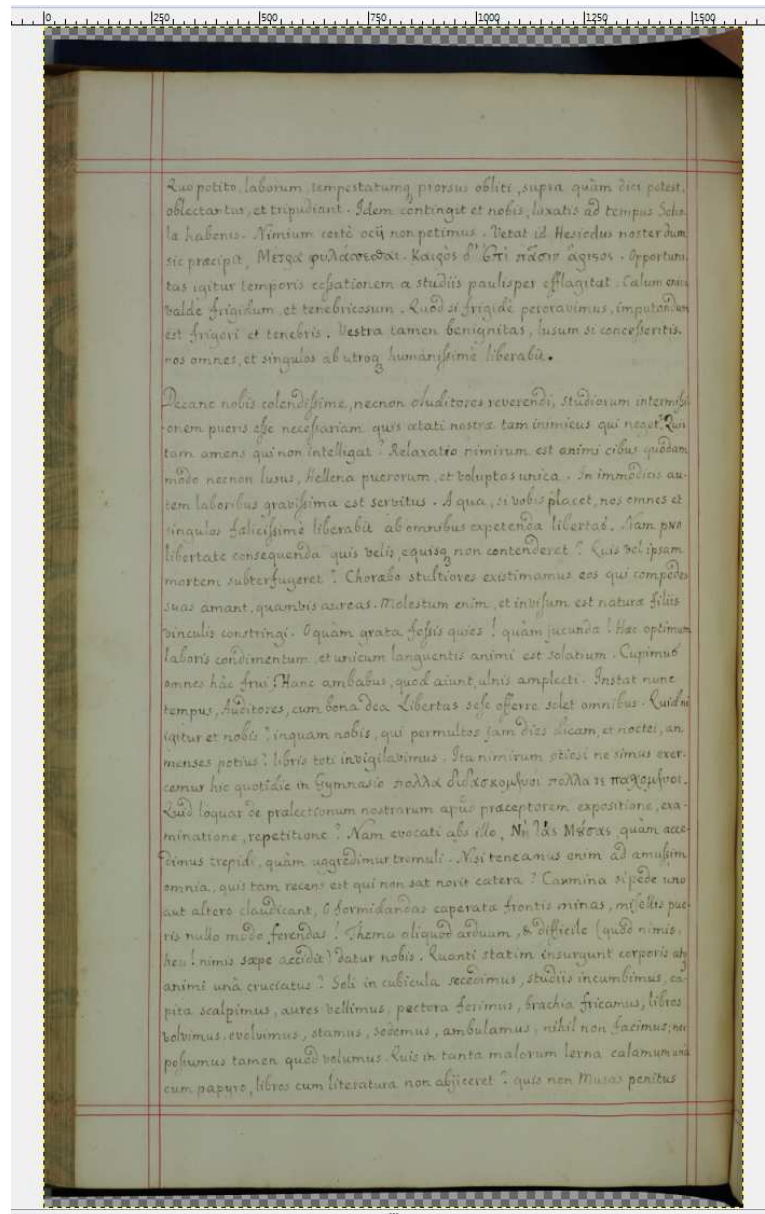 0 250 500 750 1000 1250 1500
Quo potito, laborum, tempestatumq prorsus obliti, supra quàm dici potest,
oblectantur, et tripudiant. Idem contingit et nobis, laxatis ad tempus Scho-
la habenis. Nimium certè ocij non petimus. Vetat id Hesiodus noster dum
sic præcipit, Μέτρα φυλάσσεσθαι. Καιρὸς δ' ἐπὶ πᾶσιν ἄριστος. Opportuni-
tas igitur temporis cessationem a studiis paulisper efflagitat. Cælum enim
valde frigidum, et tenebricosum. Quod si frigidè peroravimus, imputandum
est frigori et tenebris. Vestra tamen benignitas, lusum si concesseritis,
nos omnes, et singulos ab utroq humanissimè liberabit.
Decane nobis colendissime, necnon Auditores reverendi, studiorum intermissi-
onem pueris esse necessariam quis ætati nostræ tam inimicus qui neget? Quis
tam amens qui non intelligat? Relaxatio nimirum est animi cibus quodam
modo necnon lusus, Hellena puerorum, et voluptas unica. In immodicis au-
tem laboribus gravissima est servitus. A qua, si vobis placet, nos omnes et
singulos fælicissimè liberabit ab omnibus expetenda libertas. Nam pro
libertate consequenda quis velis, equisq non contenderet? Quis vel ipsam
mortem subterfugeret? Chorœbo stultiores existimamus eos qui compedes
suas amant, quamvis aureas. Molestum enim, et invisum est naturæ filiis
vinculis constringi. O quàm grata fessis quies! quàm jucunda! Hæc optimum
laboris condimentum, et unicum languentis animi est solatium. Cupimus
omnes hâc frui. Hanc ambabus, quod aiunt, ulnis amplecti. Instat nunc
tempus, Auditores, cum bona dea Libertas sese offerre solet omnibus. Quidni
igitur et nobis? inquam nobis, qui permultos jam dies dicam, et noctes, an
menses potius? libris toti invigilavimus. Ita nimirum otiosi ne simus exer-
cemur hic quotidie in Gymnasio πολλὰ διδασκομενοι πολλά τε παθομενοι.
Quid loquar de prælectionum nostrarum apud præceptorem expositione, exa-
minatione, repetitione? Nam evocati abs illo, Νὴ τὰς Μούσας quàm acce-
dimus trepidi, quàm aggredimur tremuli. Nisi teneamus enim ad amussim
omnia, quis tam recens est qui non sat norit cætera? Carmina si pede uno
aut altero claudicant, ô formidandas caperatæ frontis minas, misellis pue-
ris nullo modo ferendas! Thema aliquod arduum, & difficile (quod nimis,
heu! nimis sæpe accidit) datur nobis. Quanti statim insurgunt corporis atq
animi unà cruciatus? Soli in cubicula secedimus, studiis incumbimus, ca-
pita scalpimus, aures vellimus, pectora ferimus, brachia fricamus, libros
volvimus, evolvimus, stamus, sedemus, ambulamus, nihil non facimus; nec
possumus tamen quod volumus. Quis in tanta malorum lerna calamum unà
cum papyro, libros cum literatura non abjiceret? quis non Musas penitus